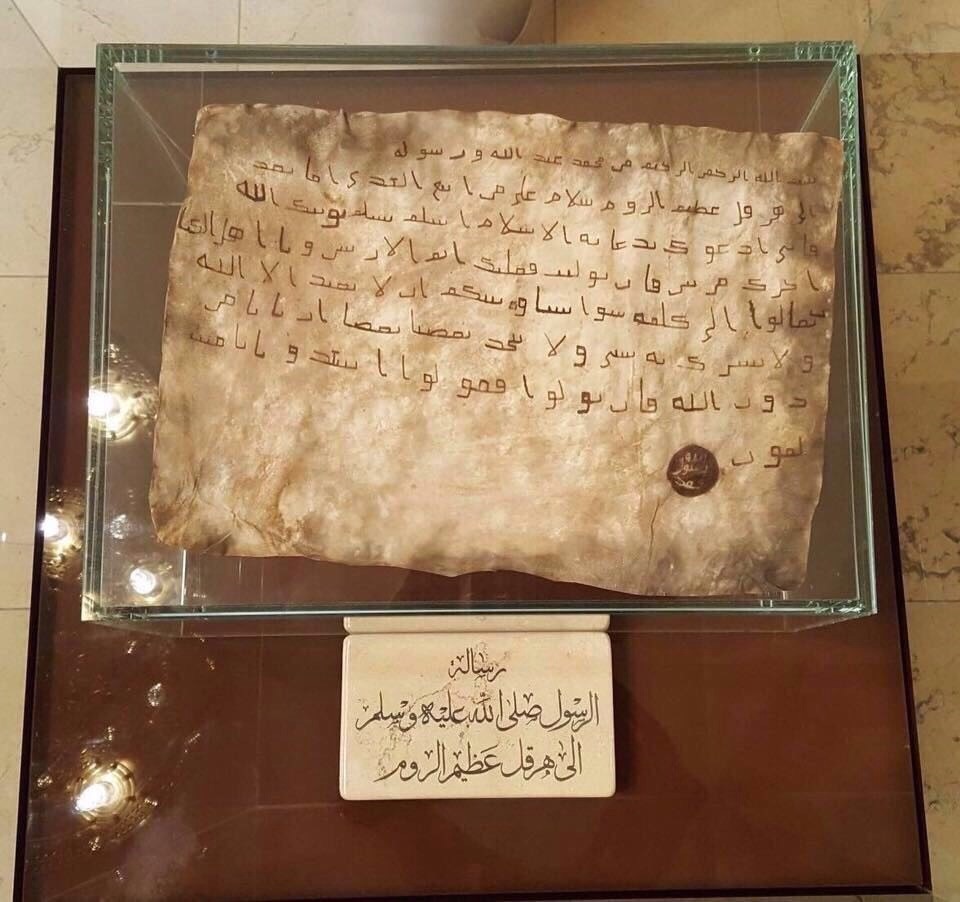 بسم الله الرحمن الرحيم من محمد عبد الله ورسوله
الى هرقل عظيم الروم سلام على من اتبع الهدى اما بعد
فانى ادعوك بدعاية الاسلام اسلم تسلم يوتك الله
اجرك مرتين فان توليت فعليك اثم الاريسين ويا اهل الكتاب
تعالوا الى كلمة سوا بيننا وبينكم ان لا نعبد الا الله
ولا نشرك به شى ولا يتخذ بعضنا بعضا اربابا من
دون الله فان تولوا فقولوا اشهدوا بانا مس
لمون
الله
رسول
محمد
رسالة
الرسول صلى الله عليه وسلم
الى هرقل عظيم الروم